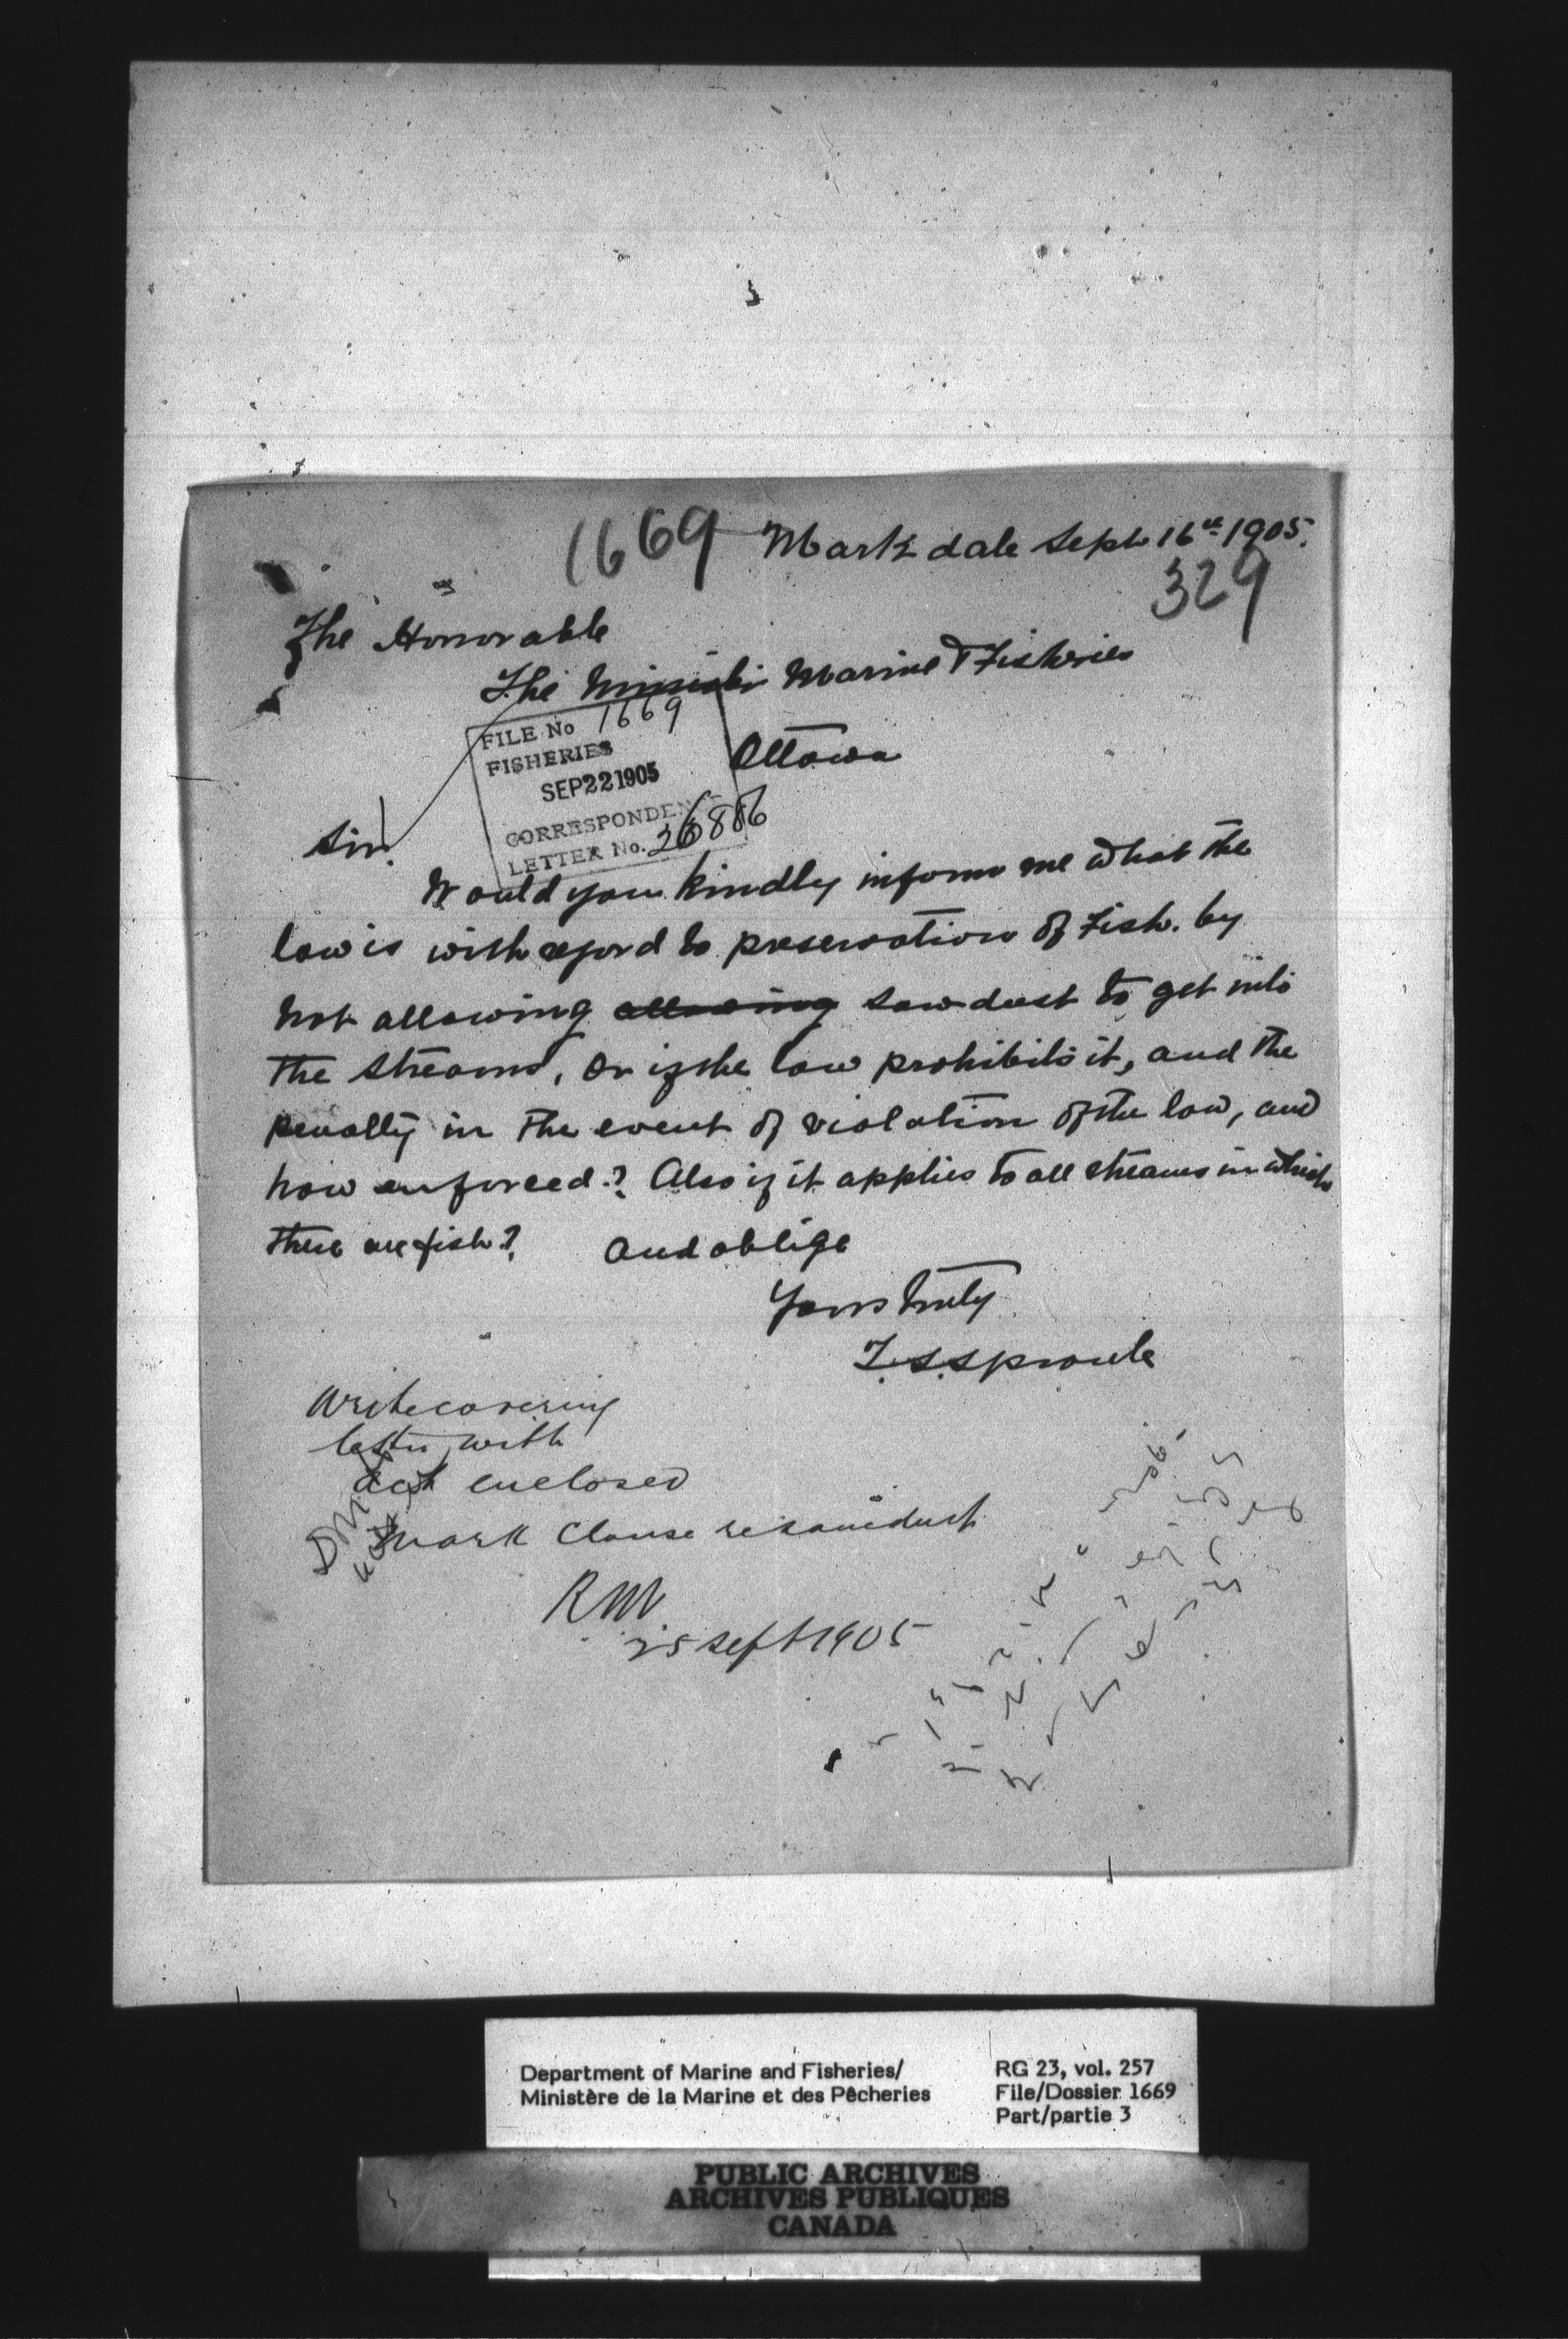 1669 Markdale Sept 16th 1905.
329
The Honorable
The Minister Marine & Fisheries
Ottawa
FILE No 1669
FISHERIES
SEP 22 1905
CORRESPONDENCE
LETTER No. 26886
Sir.
Would you kindly inform me what the
law is with regard to preservation of Fish. by
not allowing allowing sawdust to get into
the streams, or if the law prohibits it, and the
penalty in the event of violation of the law, and
how enforced? Also if it applies to all streams in which
there are fish? And oblige
Yours truly
T. S. Sproule
Write covering
letter with
act enclosed
Mark Clause re sawdust
RM
25 Sept 1905
Department of Marine and Fisheries/
Ministère de la Marine et des Pêcheries
RG 23, vol. 257
File/Dossier 1669
Part/partie 3
PUBLIC ARCHIVES
ARCHIVES PUBLIQUES
CANADA